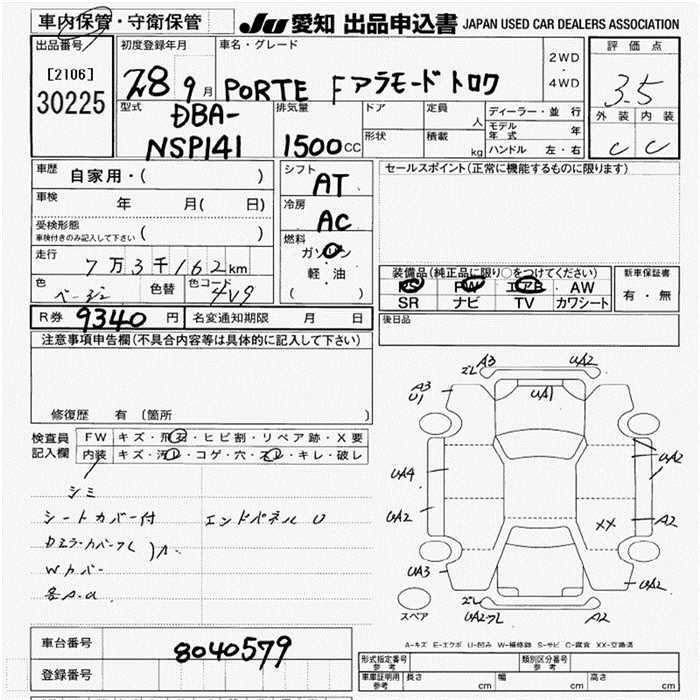 車内保管・守衛保管
JU 愛知 出品申込書 JAPAN USED CAR DEALERS ASSOCIATION
出品番号
[2106]
30225
初度登録年月
28 9月
車名・グレード
PORTE F アラモード トロワ
2WD
・
4WD
評価点
3.5
外装 内装
C C
型式
DBA-
NSP141
排気量
1500cc
ドア
定員
人
形状
積載
kg
ディーラー・並行
モデル年式 年
ハンドル 左・右
車歴
自家用・( )
車検
年 月( 日)
受検形態
車検付きのみ記入して下さい ( )
走行
7万3千162km
色
ベージュ
色替
色コード
4V9
シフト
AT
冷房
AC
燃料
ガソリン
・
軽油
( )
セールスポイント(正常に機能するものに限ります)
装備品(純正品に限り○をつけてください)
PS PW エアB AW
SR ナビ TV カワシート
新車保証書
有・無
R券 9340円
名変通知期限 月 日
後日品
注意事項申告欄(不具合内容等は具体的に記入して下さい)
修復歴 有 (箇所 )
検査員
記入欄
FW キズ・飛石・ヒビ割・リペア跡・X要
内装 キズ・汚レ・コゲ・穴・スレ・キレ・破レ
シミ
シートカバー付 エンドパネル U
Wカバー
各A.a
A3
ズレ
UA2
A3
U1
UA1
UA4
UA2
UA2
XX
A2
UA3
UA2
ズレ
UA2フレ
A2
スペア
A-キズ E-エクボ U-凹み W-補修跡 S-サビ C-腐食 XX-交換済
車台番号
8040579
登録番号
形式指定番号
参考
類別区分番号
参考
車庫証明用
参考
長さ cm
幅 cm
高さ cm